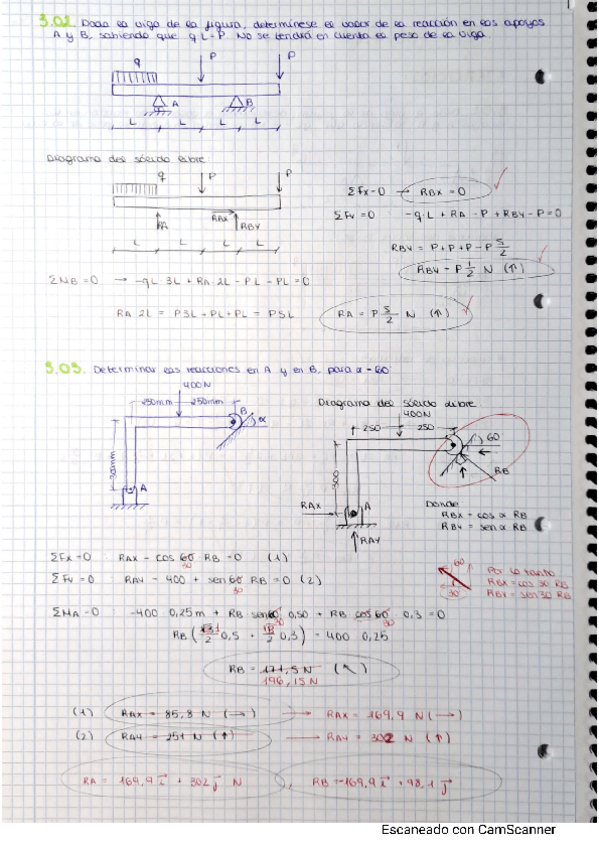 3.02. Dada la viga de la figura, determínese el valor de la reacción en los apoyos
A y B, sabiendo que qL=P. No se tendrá en cuenta el peso de la viga.
q P P
A B
L L L L
Diagrama del sólido libre:
q P P
RA RBX RBY
L L L L
ΣFx=0 → RBX = 0
ΣFy=0 -q·L + RA - P + RBY - P = 0
RBY = P+P+P-P 5/2
RBY = P 1/2 N (↑)
ΣMB=0 → -qL·3L + RA·2L - PL - PL = 0
RA 2L = P3L + PL + PL = P5L
RA = P 5/2 N (↑)
3.03. Determinar las reacciones en A y en B, para α=60
400N
250mm 250mm
B α
300mm
A
Diagrama del sólido libre
400N
250 250
60
RB
300
RAX A
RAY
Donde
RBX = cos α RB
RBY = sen α RB
ΣFx=0 RAX - cos 60 RB = 0 (1)
30
ΣFy=0 RAY - 400 + sen 60 RB = 0 (2)
30
60
30
Por lo tanto
RBX = cos 30 RB
RBY = sen 30 RB
ΣMA=0 -400 0,25m + RB sen 60 0,50 + RB cos 60 0,3 = 0
30 30
RB = 171,5 N (↖)
196,15 N
(1) RAX = 85,8 N (→) → RAX = 169,9 N (→)
(2) RAY = 251 N (↑) → RAY = 302 N (↑)
RA = 169,9 i + 302 j N , RB = -169,9 i + 98,1 j
Escaneado con CamScanner